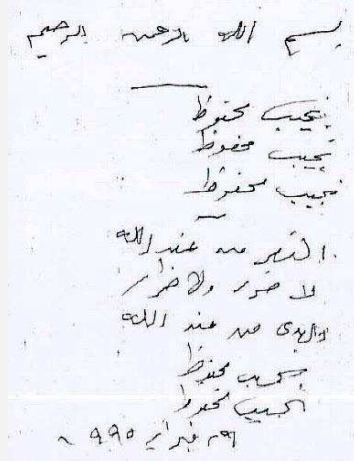 بسم الله الرحمن الرحيم
نجيب محفوظ
نجيب محفوظ
نجيب محفوظ
من عند الله
لا ضرر ولا ضرار
من عند الله
نجيب محفوظ
نجيب محفوظ
فبراير ١٩٩٥